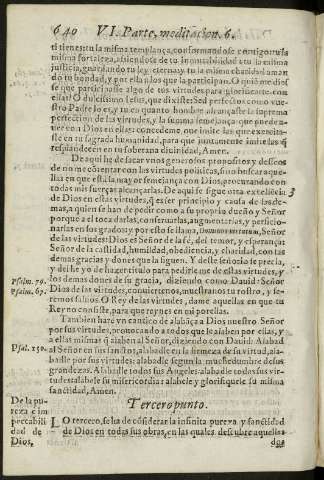 640 VI. Parte, meditacion. 6.
ti tienes tu la misma templança, conformandose contigo: tu la
misma fortaleza, asiendose de tu inmutabilidad: tu la misma
justicia, guardando tu ley eterna: y tu la misma charidad aman
do tu bondad, y por ella a los que la participan. O quié me diesse
que participasse algo de tus virtudes para glorificarte con
ellas! O dulcissimo Iesus, que dixiste: Sed perfectos como vuestro
Padre lo es, y tu en quanto hombre alcançaste la suprema
perfeccion de las virtudes, y la summa semejança que puede auer
con Dios en ellas: concedeme, que imite las que exercitaste
en tu sagrada humanidad, para que juntamente imite las q̃
resplandecen en tu soberana diuinidad, Amen.
De aqui he de sacar vnos generosos propositos y desseos
de no me contentar con las virtudes politicas, sino buscar aquella
en que está la mayor semejança con Dios, procurando con
todas mis fuerças alcançarlas. De aqui se sigue otra excelécia 3
de Dios en estas virtudes, q̃ es ser principio y causa de las demas,
a quien se han de pedir como a su proprio dueño y Señor
porque a el toca darlas, conseruarlas, augmentarlas, y perficionarlas
en los grados: y por esto se llama, Dominus virtutum, Señor
de las virtudes: Dios es Señor de la fé, del temor, y esperança:
Señor de la castidad, humildad, obediencia, y charidad, con las
demas gracias y dones que la siguen. Y deste señorio se precia,
y de esse yo de hazer titulo para pedirle me dé estas virtudes, y
los demas dones de su gracia, diziendo como Dauid: Señor
Psalm. 79. Dios de las virtudes, conuiertenos, muestranos tu rostro, y seremos
Psalm. 67. saluos. O Rey de las virtudes, dame aquellas en que tu
Reyno consiste, para que reynes en mi por ellas.
Tambien haré vn cantico de alabãça a Dios nuestro Señor
por sus virtudes, prouocando a todos que le alaben por ellas, y
a ellas mismas q̃ alaben al Señor, diziendo con Dauid: Alabad
Psal. 150. al Señor en sus sanctos, alabadle en la firmeza de su virtud, alabadle
por sus virtudes: alabadle segun la muchedumbre de sus
grandezas. Alabadle todos sus Angeles: alabadle todas sus virtudes:
alabele su misericordia: alabele y glorifiquele su misma
sanctidad, Amen.
Tercero punto.
De la pureza
e impeccabilidad
de
Dios.
LO tercero, se ha de cósiderar la infinita pureza y sanctidad
de Dios en todas sus obras, en las quales descubre aquellas
dos